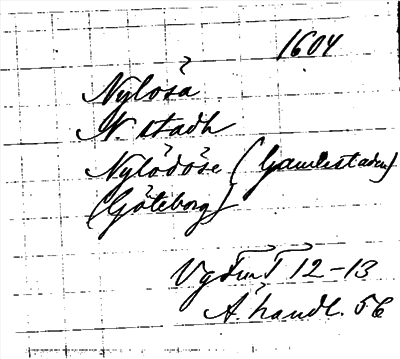 1604
Nylösa
N. stadh
Nylödöse (Gamlestaden)
(Göteborg)
12-13
A. handl. 56